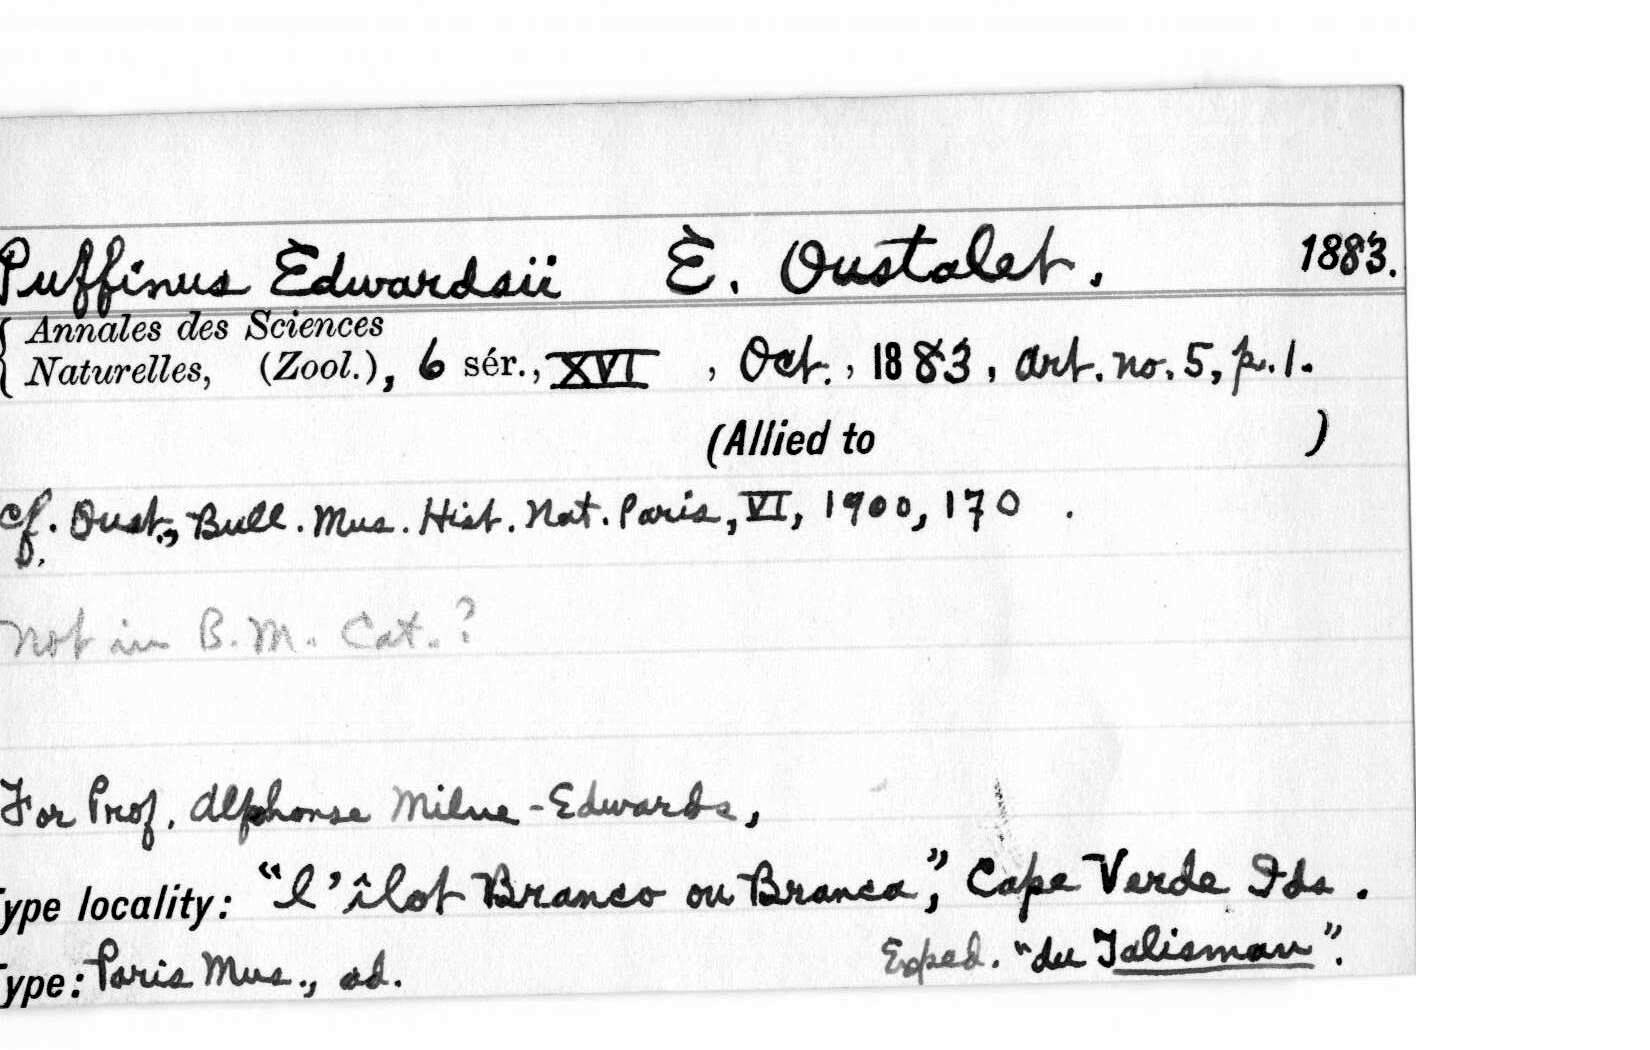 Puffinus Èdwardsii È. Oustalet. 1883.
Annales des Sciences
Naturelles, (Zool.), 6 sér., XVI, Oct., 1883, art. no. 5, p. 1.
(Allied to )
cf. Oust., Bull. Mus. Hist. Nat. Paris, VI, 1900, 170.
Not in B. M. Cat.?
For Prof. Alphonse Milne-Edwards,
ype locality: "l'îlot Branco ou Branca", Cape Verde Ids.
ype: Paris Mus., ad. Exped. "du Talisman".